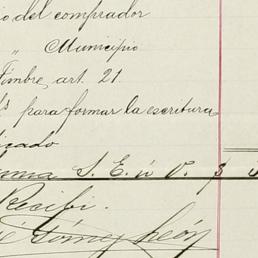 io del comprador
" Municipio
Timbre, art. 21
para formar la escritura
icado
uma S. E. ú O. $
Recibí.
é Gómez León